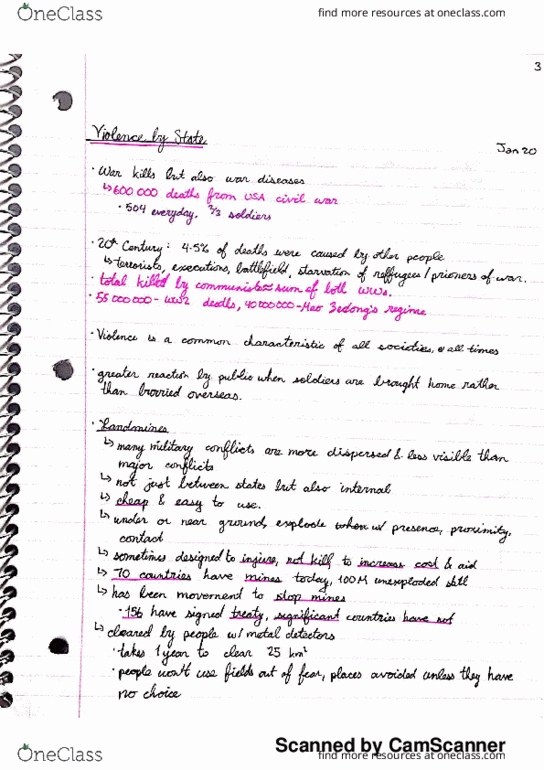 OneClass
find more resources at oneclass.com
3
Violence by State
Jan 20
· War kills but also war diseases
↳ 600 000 deaths from USA civil war
· 504 everyday, 2/3 soldiers
· 20th Century: 4.5% of deaths were caused by other people
↳ terrorists, executions, battlefield, starvation of reffugees/prioners of war.
· total killed by communists≈sum of both wws.
· 55 000000 - WW2 deaths, 40 000000 - Mao Zedong's regime
· Violence is a common characteristic of all societies, @ all times
· greater reaction by public when soldiers are brought home rather
than burried overseas.
· Landmines
↳ many military conflicts are more dispersed & less visible than
major conflicts
↳ not just between states but also internal
↳ cheap & easy to use.
↳ under or near ground, explode when w/ presence, proximity,
contact
↳ sometimes designed to injure, not kill to increase cost & aid
↳ 70 countries have mines today, 100M unexploded still
↳ has been movement to stop mines
· 156 have signed treaty, significant countries have not
↳ cleared by people w/ metal detectors
· takes 1 year to clear 25 km²
· people won't use fields out of fear, places avoided unless they have
no choice
Scanned by CamScanner
OneClass
find more resources at oneclass.com